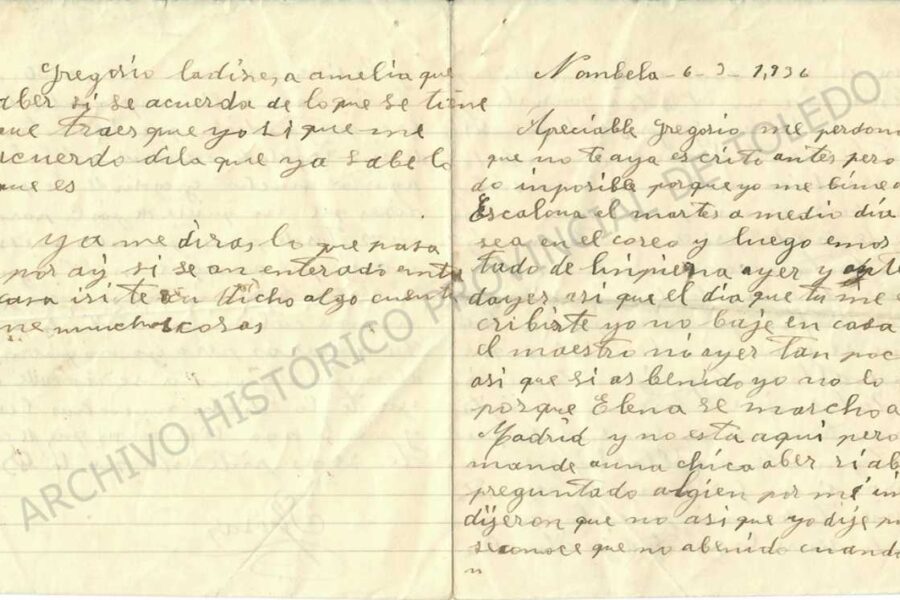 Gregorio ladises a amelia que
aber si se acuerda de lo que se tiene
que traer que yo si que me
acuerdo dila que ya sabe lo
que es
ya me diras lo que pasa
por ay si se an enterado en tu
casa isi te an dicho algo cuenta
me muchas cosas
Nombela - 6 - 3 - 1,936
Apeciable Gregorio me perdona
que no te aya escrito antes pero
do inposible porque yo me bine a
Escalona el martes a medio dia
sea en el coreo y luego emos
tado de linpieza ayer y ante
dayer asi que el dia que tu me es
cribiste yo no baje en casa
el maestro ni ayer tan poc
asi que si as benido yo no lo
porque Elena se marcho a
Madrid y no esta aqui pero
mande a una chica aber si ab
preguntado algien por me i m
dijeron que no asi que yo dije p
se conoce que no a benido cuando
ARCHIVO HISTÓRICO PROVINCIAL DE TOLEDO